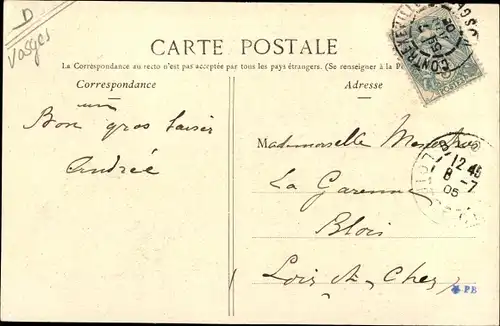 D
Vosges
CARTE POSTALE
La Correspondance au recto n'est pas acceptée par tous les pays étrangers. (Se renseigner à la
Correspondance
Adresse
un
Bon gros baiser
Andrée
Mademoiselle
La Garenne
Blois
Loir-et-Cher
CONTREXEVILLE
12 45
8-7
05
PB